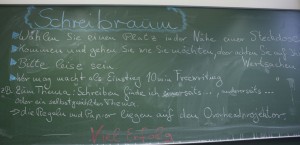 Schreibraum
Wählen Sie einen Platz in der Nähe einer Steckdose
Kommen und gehen Sie wie Sie möchten, aber achten Sie auf
Wertsachen
Bitte leise sein
Wer mag macht als Einstieg 10 min Freewriting
z.B. zum Thema: Schreiben finde ich einerseits..., andererseits...
oder ein selbstgewähltes Thema
→ die Regeln und Papier liegen auf dem Overheadprojektor.
Viel